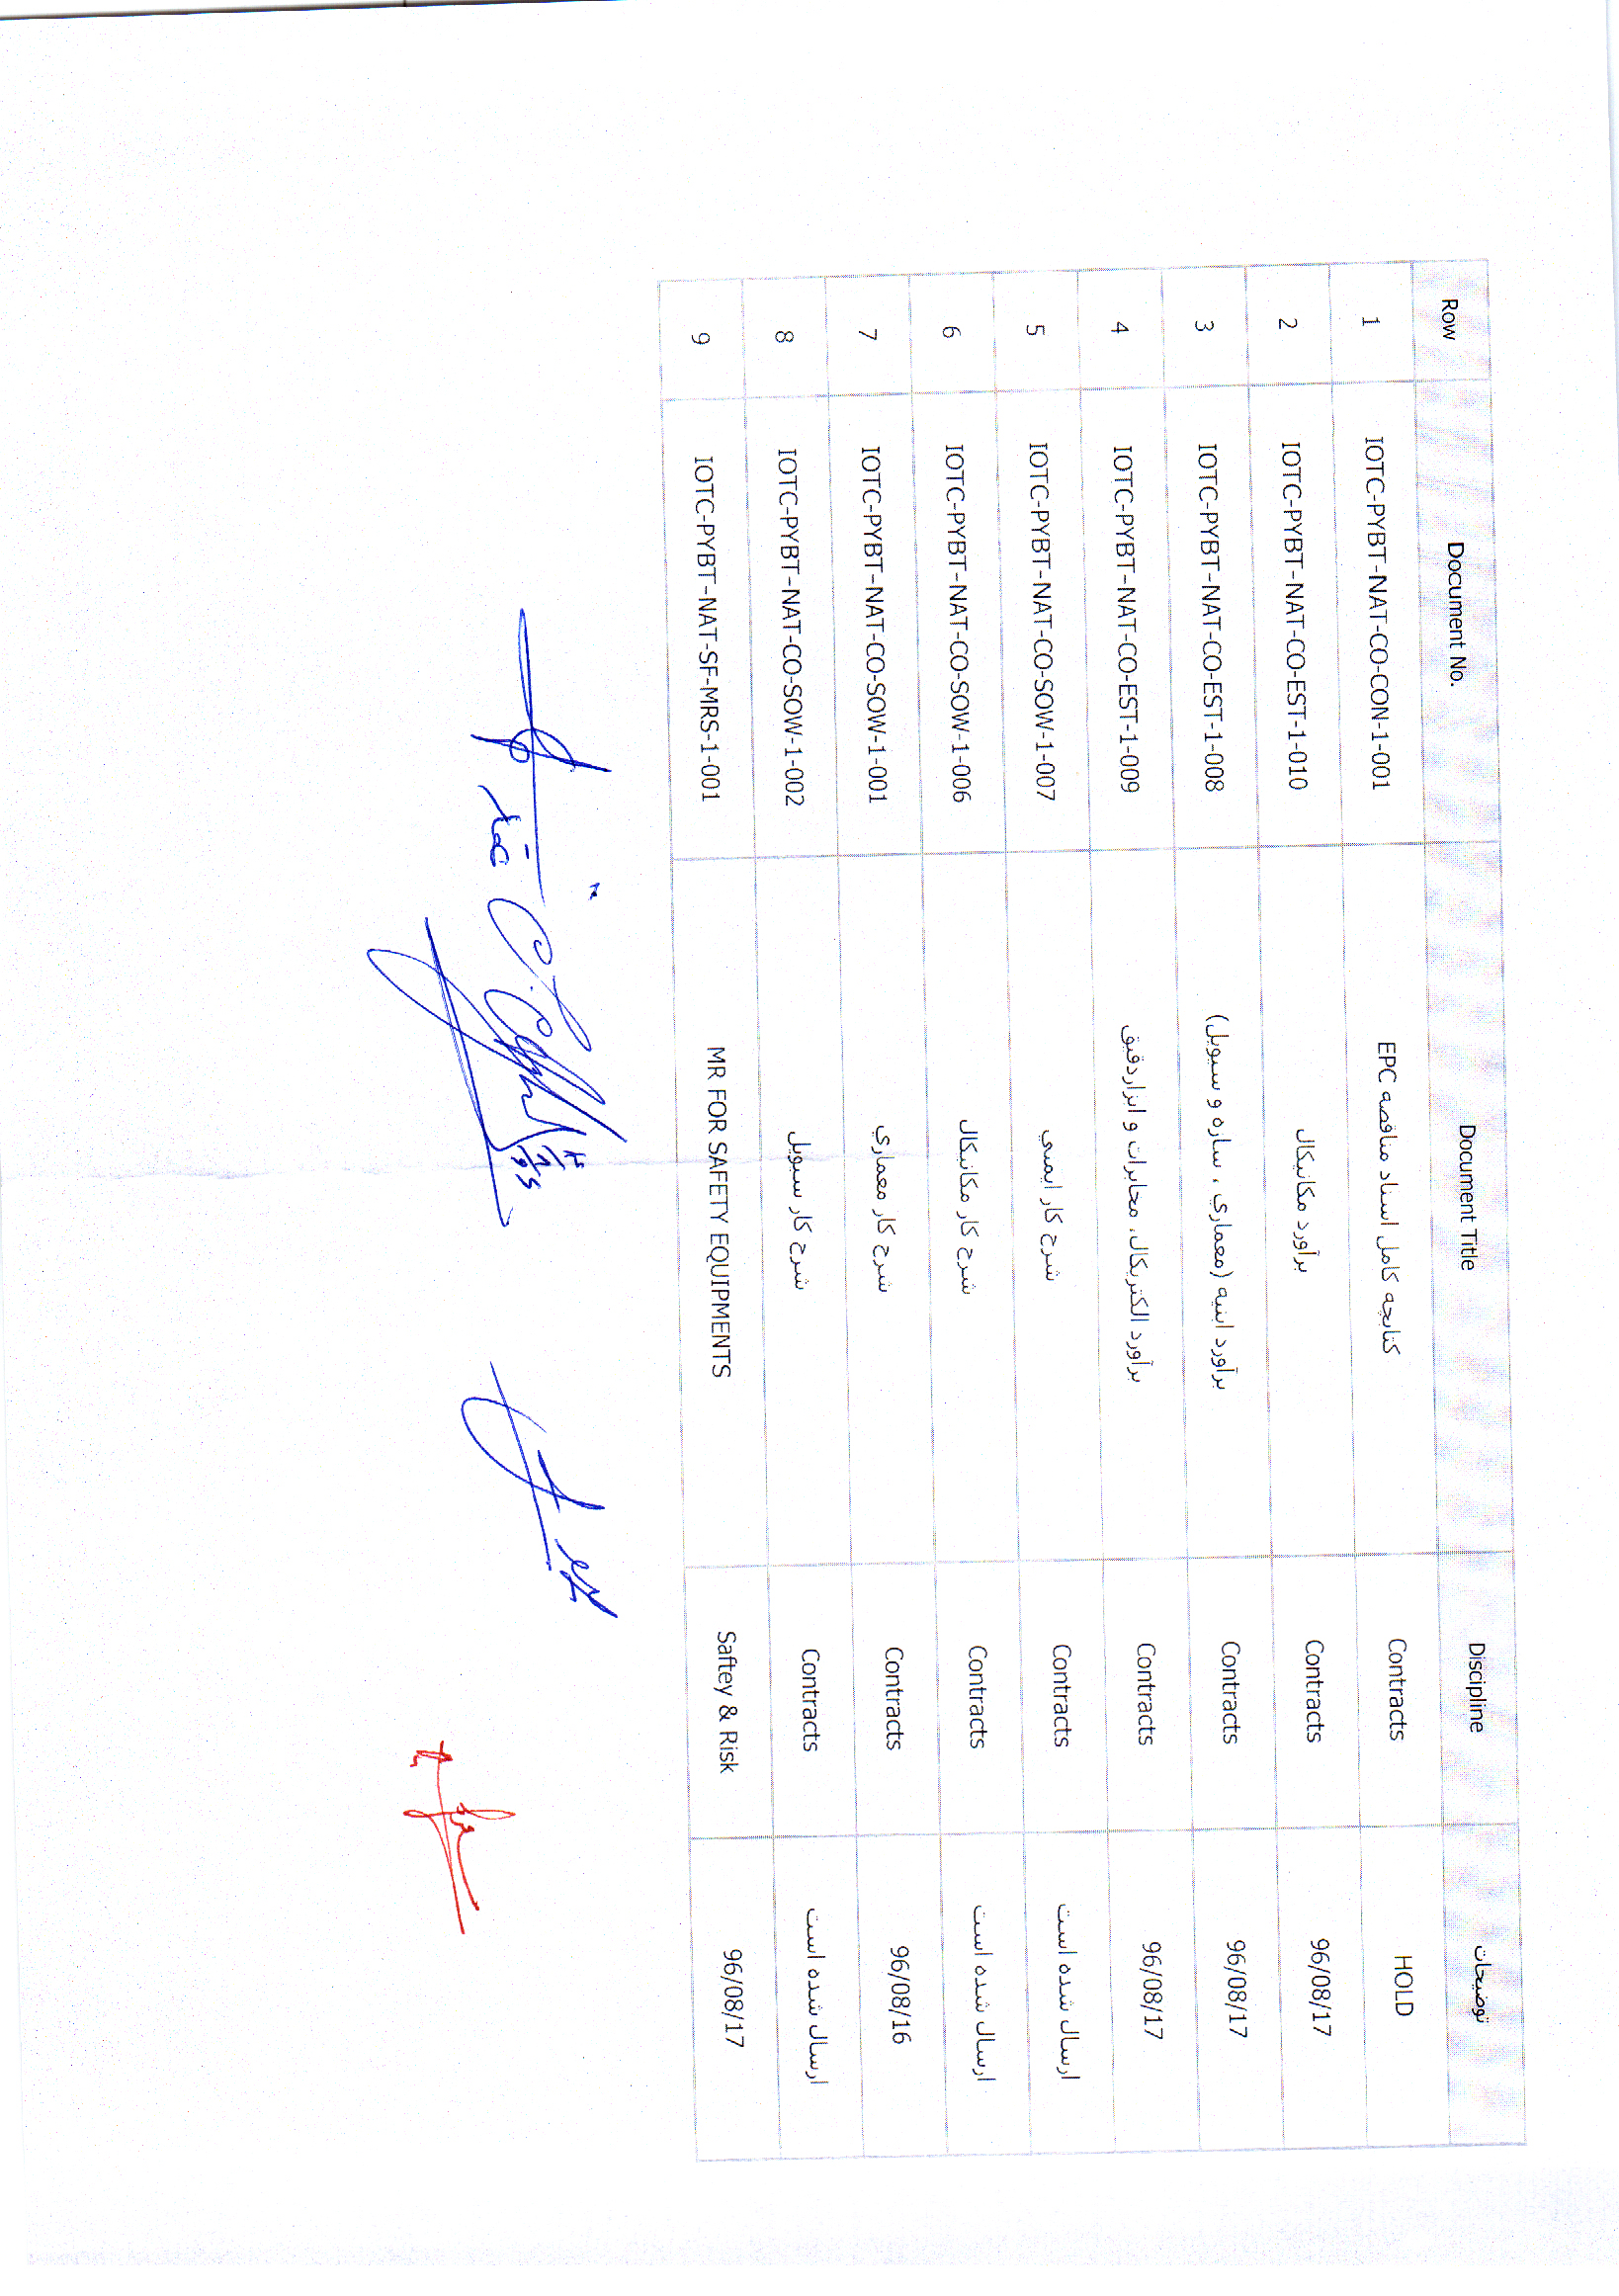 Row Document No. Document Title Discipline توضیحات
1 IOTC-PYBT-NAT-CO-CON-1-001 کتابچه کامل اسناد مناقصه EPC Contracts HOLD
2 IOTC-PYBT-NAT-CO-EST-1-010 برآورد مکانیکال Contracts 96/08/17
3 IOTC-PYBT-NAT-CO-EST-1-008 برآورد ابنیه (معماري ، سازه و سیویل) Contracts 96/08/17
4 IOTC-PYBT-NAT-CO-EST-1-009 برآورد الکتریکال، مخابرات و ابزاردقیق Contracts 96/08/17
5 IOTC-PYBT-NAT-CO-SOW-1-007 شرح کار ایمنی Contracts ارسال شده است
6 IOTC-PYBT-NAT-CO-SOW-1-006 شرح کار مکانیکال Contracts ارسال شده است
7 IOTC-PYBT-NAT-CO-SOW-1-001 شرح کار معماري Contracts 96/08/16
8 IOTC-PYBT-NAT-CO-SOW-1-002 شرح کار سیویل Contracts ارسال شده است
9 IOTC-PYBT-NAT-SF-MRS-1-001 MR FOR SAFETY EQUIPMENTS Saftey & Risk 96/08/17